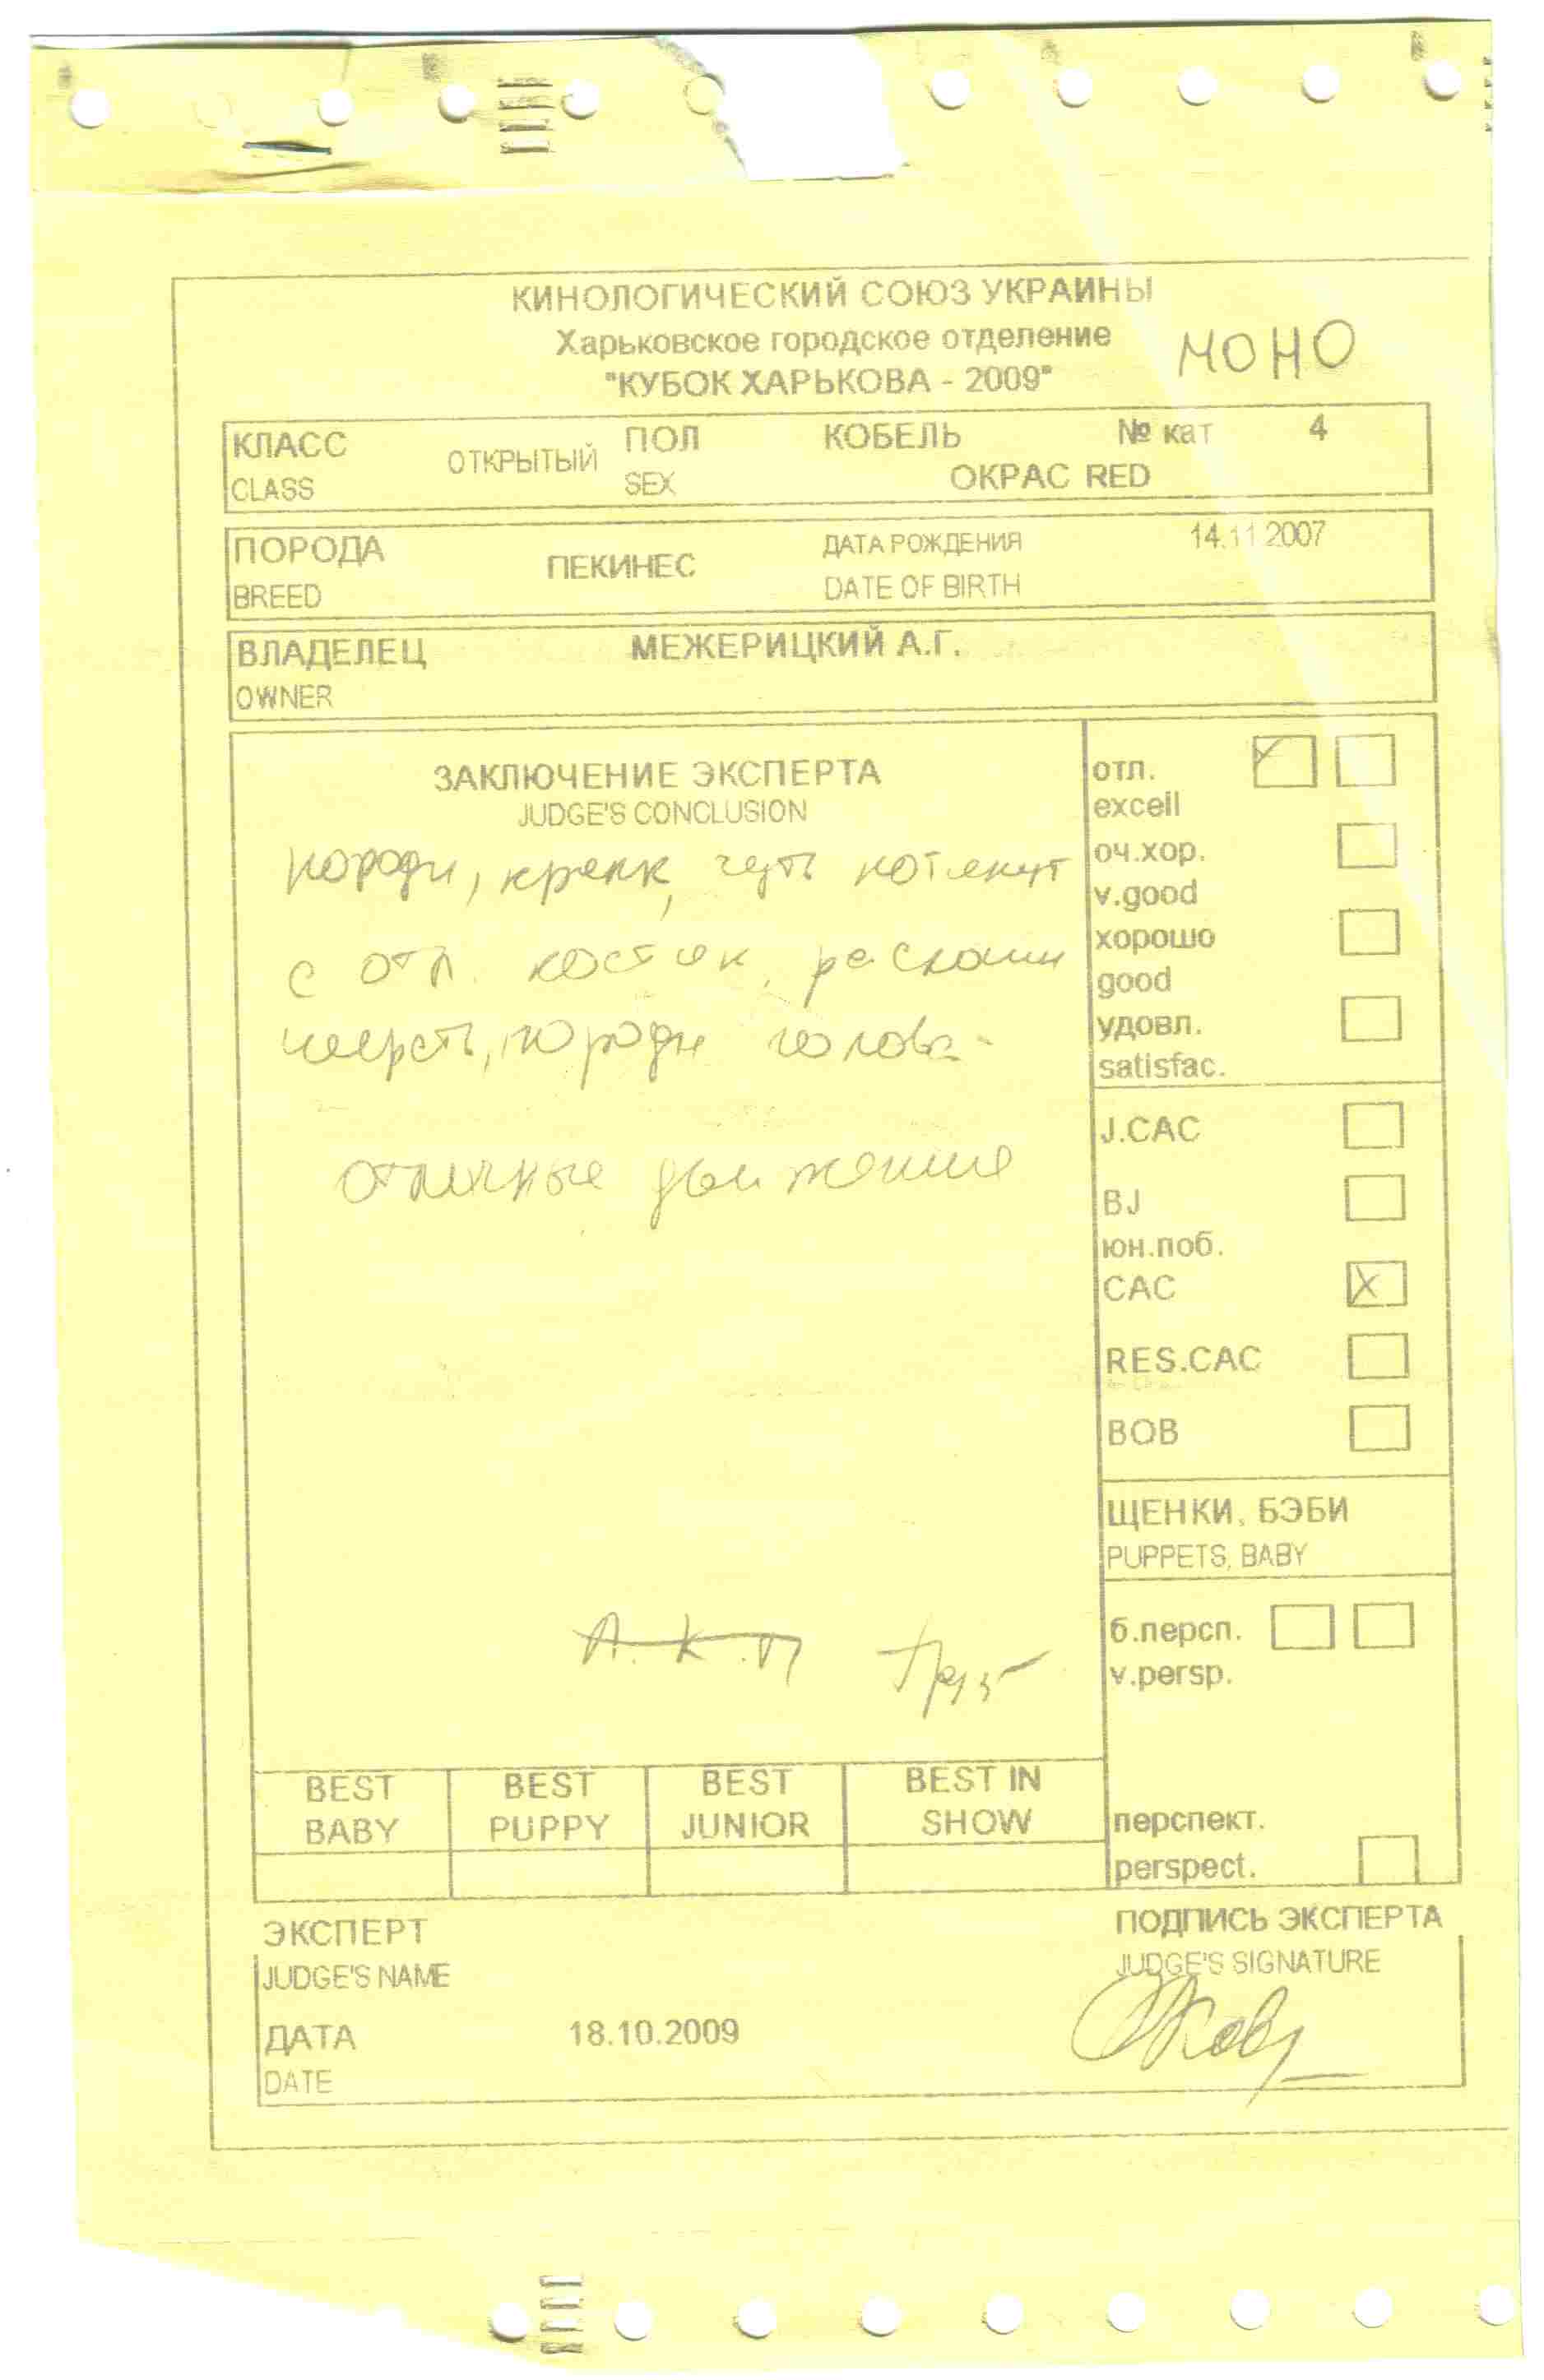 КИНОЛОГИЧЕСКИЙ СОЮЗ УКРАИНЫ
Харьковское городское отделение
МОНО
"КУБОК ХАРЬКОВА - 2009"
КЛАСС ОТКРЫТЫЙ ПОЛ КОБЕЛЬ № кат 4
CLASS SEX ОКРАС RED
ПОРОДА ПЕКИНЕС ДАТА РОЖДЕНИЯ 14.11.2007
BREED DATE OF BIRTH
ВЛАДЕЛЕЦ МЕЖЕРИЦКИЙ А.Г.
OWNER
ЗАКЛЮЧЕНИЕ ЭКСПЕРТА
JUDGE'S CONCLUSION
породн, крепк, чуть
с отл. костяк,
шерсть, породн голова
отличные движения
А.К.П
отл.
excell
оч.хор.
v.good
хорошо
good
удовл.
satisfac.
J.CAC
BJ
юн.поб.
CAC X
RES.CAC
BOB
ЩЕНКИ, БЭБИ
PUPPETS, BABY
б.персп.
v.persp.
перспект.
perspect.
BEST BEST BEST BEST IN
BABY PUPPY JUNIOR SHOW
ЭКСПЕРТ ПОДПИСЬ ЭКСПЕРТА
JUDGE'S NAME JUDGE'S SIGNATURE
ДАТА 18.10.2009
DATE